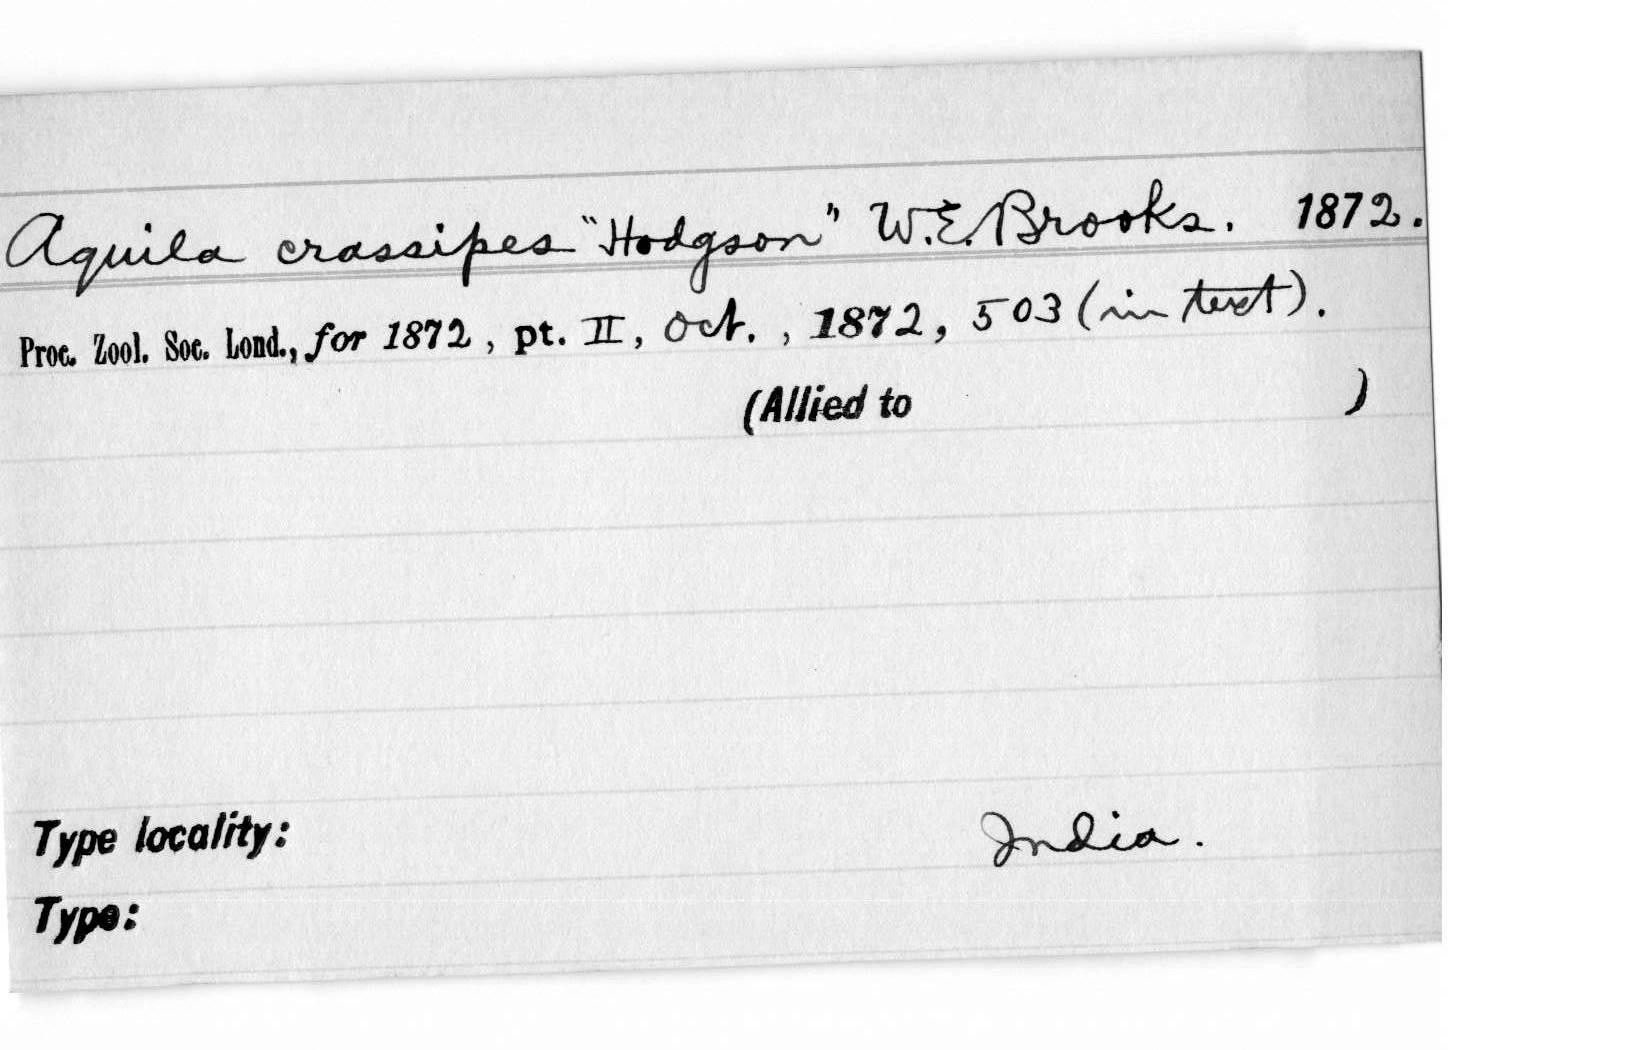 Aquila crassipes "Hodgson" W.E. Brooks. 1872.
Proc. Zool. Soc. Lond., for 1872, pt. II, Oct., 1872, 503 (in text).
(Allied to )
Type locality: India.
Type: